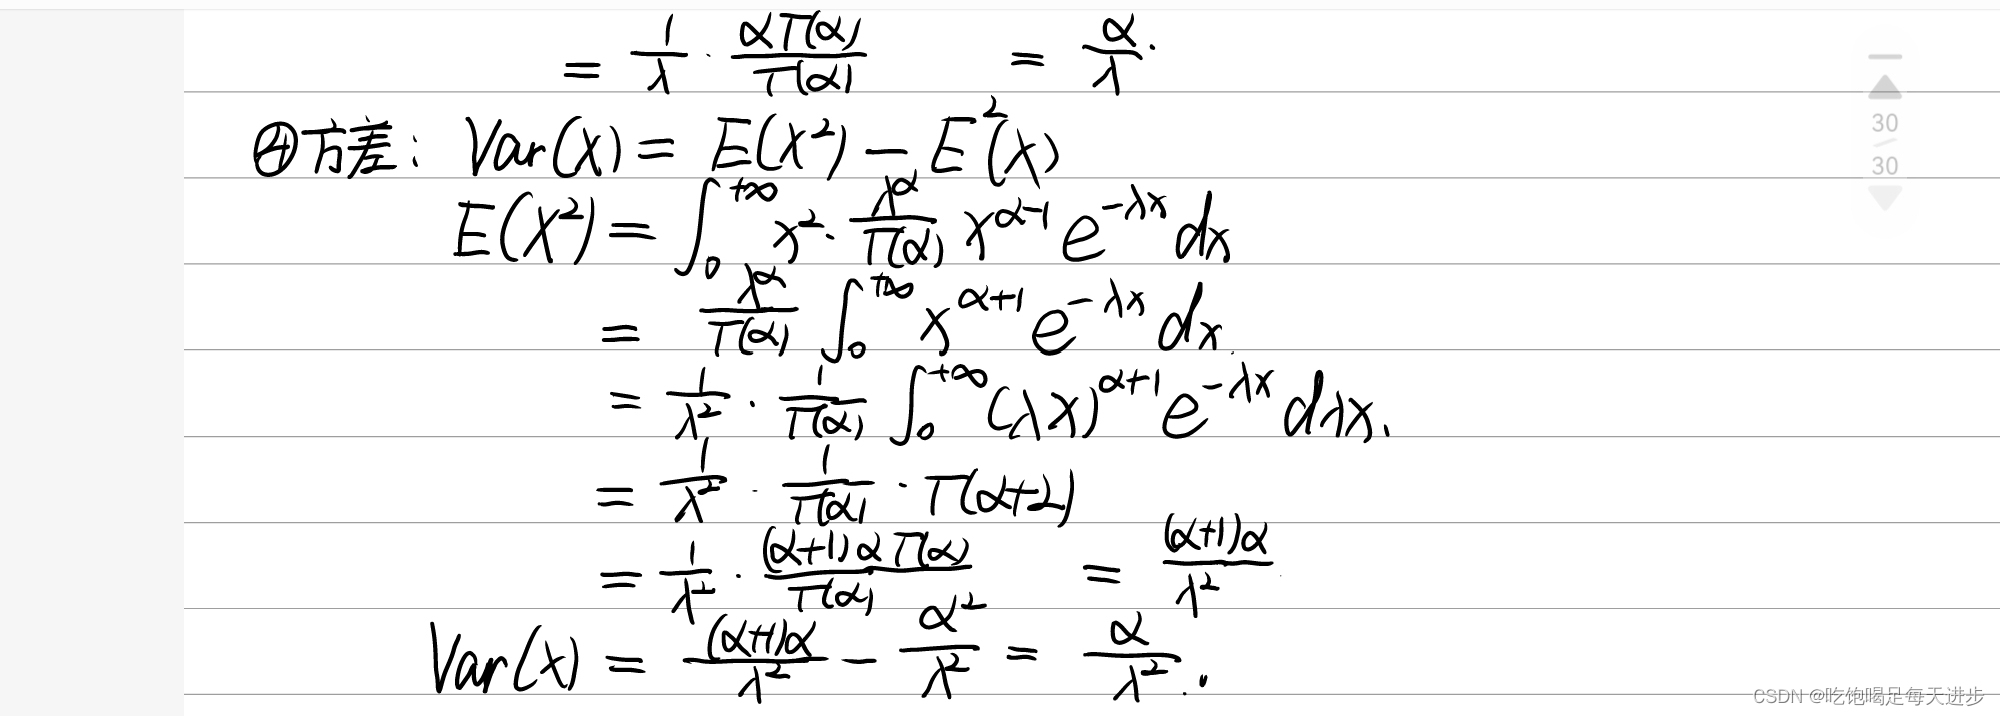 = 1/λ · αΓ(α)/Γ(α) = α/λ.
④方差: Var(X) = E(X²) - E²(X)
E(X²) = ∫₀^{+∞} x² · λ^α/Γ(α) x^{α-1} e^{-λx} dx
= λ^α/Γ(α) ∫₀^{+∞} x^{α+1} e^{-λx} dx.
= 1/λ² · 1/Γ(α) ∫₀^{+∞} (λx)^{α+1} e^{-λx} dλx.
= 1/λ² · 1/Γ(α) · Γ(α+2)
= 1/λ² · (α+1)αΓ(α)/Γ(α) = (α+1)α/λ²
Var(X) = (α+1)α/λ² - α²/λ² = α/λ².
30
30
CSDN @吃饱喝足每天进步